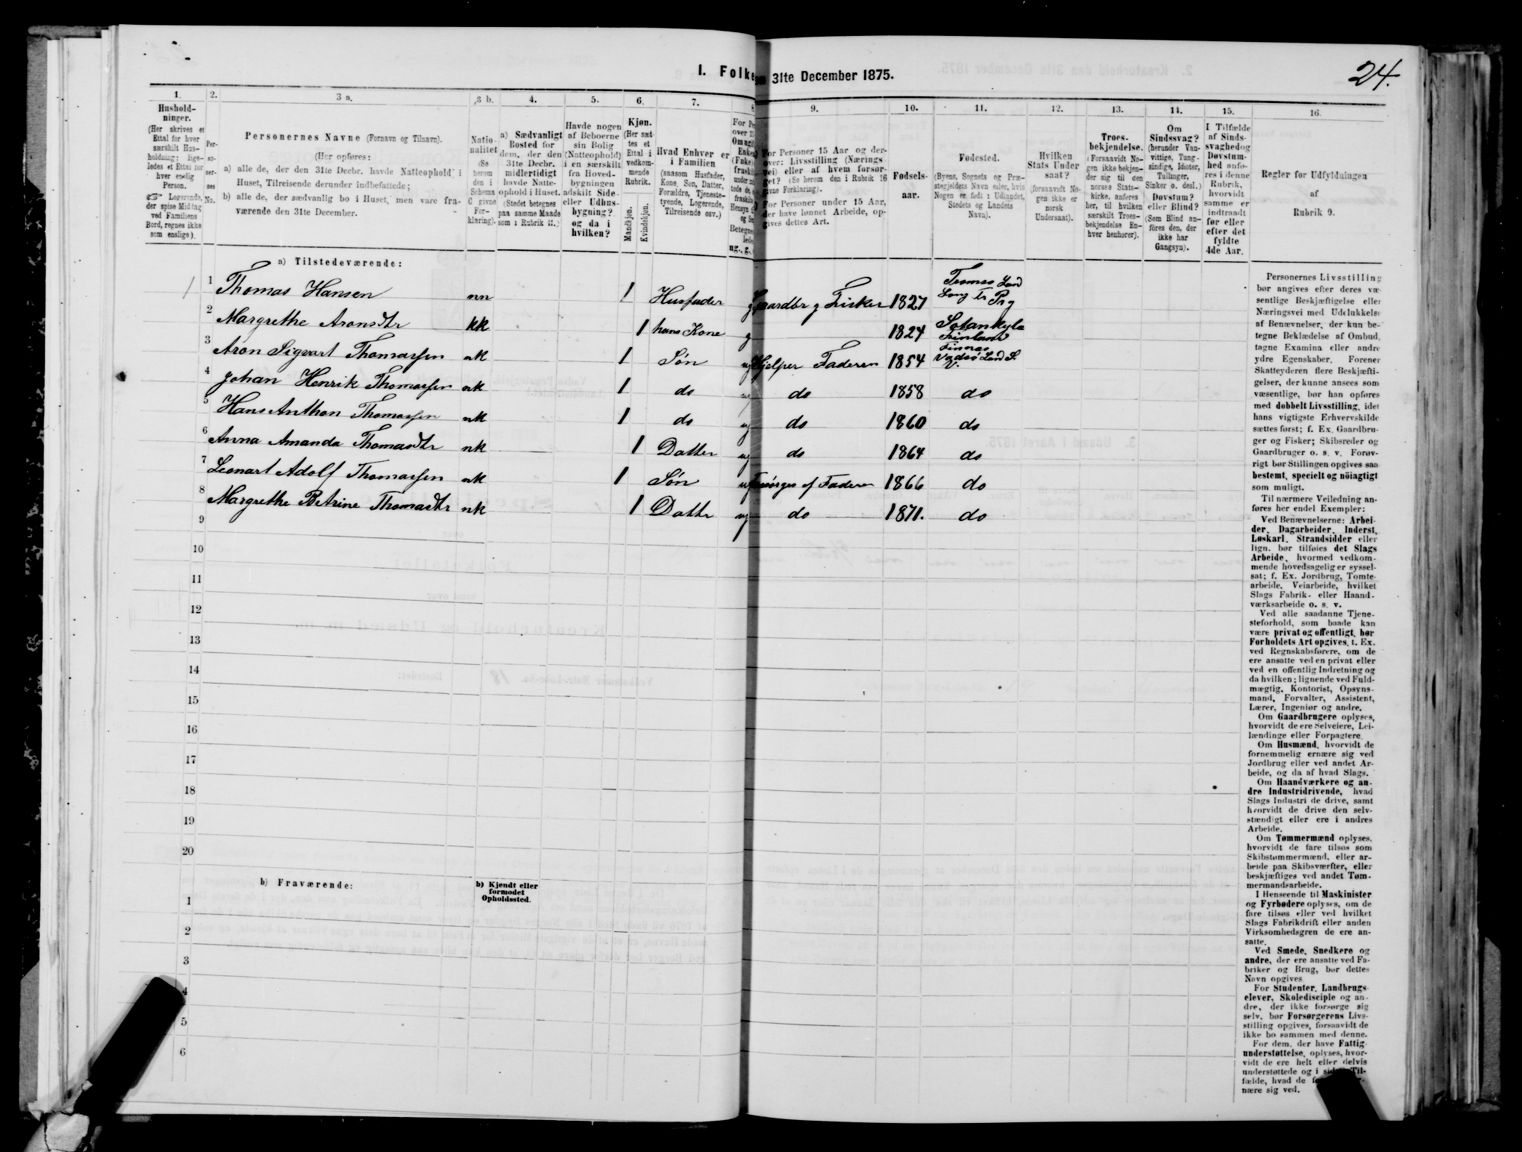 24.
I. Folke
31te December 1875.
1. 2. 3 a. 3 b. 4. 5. 6. 7. 8 9. 10. 11. 12. 13. 14. 15. 16.
Hushold-
ninger.
(Her skrives et
Ettal for hver
særskilt Hus-
holdning; lige-
ledes et Ettal for
hver enslig
Person.
Logerende,
der spise Middag
ved Familiens
Bord, regnes ikke
som enslige).
Per-
so-
ner-
nes
No.
Personernes Navne (Fornavn og Tilnavn).
(Her opføres:
a) alle de, der den 31te Decbr. havde Natteophold i
Huset, Tilreisende derunder indbefattede;
b) alle de, der sædvanlig bo i Huset, men vare fra-
værende den 31te December.
Natio-
nalitet
(Se
herom
den i
Schema
C givne
For-
klaring).
a) Sædvanligt
Bosted for
dem, der den
31te Decbr.
midlertidigt
havde Natte-
ophold i Huset.
(Stedet betegnes
paa samme Maade
som i Rubrik 11.)
Havde nogen
af Beboerne
sin Bolig
(Natteophold)
i en særskilt
fra Hoved-
bygningen
adskilt Side-
eller Udhus-
bygning?
og da i
hvilken?
Kjøn.
(Her sæt-
tes et
Ettal i
vedkom-
mende
Rubrik.
Mandkjøn.
Kvindekjøn.
Hvad Enhver er
i Familien
(saasom Husfader,
Kone, Søn, Datter,
Forældre, Tjeneste-
tyende, Logerende,
Tilreisende osv.)
For Personer 15 Aar og der-
over: Livsstilling (Nærings-
vei) eller af hvem forsør-
get? (Se herom den i Rubrik 16
givne Forklaring).
For Personer under 15 Aar,
der have lønnet Arbeide, op-
gives dettes Art.
Fødsels-
aar.
Fødested.
(Byens, Sognets og Præ-
stegjeldets Navn eller, hvis
Nogen er født i Udlandet,
Stedets og Landets
Navn).
Hvilken
Stats Under-
saat?
(forsaavidt No-
gen ikke er
norsk
Undersaat).
Troes-
bekjendelse.
(Forsaavidt No-
gen ikke bekjen-
der sig til den
norske Stats-
kirke, anføres
her, til hvilken
særskilt Troes-
bekjendelse En-
hver henhører).
Om
Sindssvag?
(herunder Van-
vittige, Tung-
sindige, Idioter,
Tullinger,
Sinker o. desl.)
Døvstum?
eller Blind?
(Som Blind an-
føres den, der
ikke har
Gangsyn).
I Tilfælde
af Sinds-
svaghed og
Døvstum-
hed anfø-
res i denne
Rubrik,
hvorvidt
samme er
indtraadt
før eller
efter det
fyldte
4de Aar.
Regler for Udfyldningen
af
Rubrik 9.
a) Tilstedeværende:
1 1 Thomas Hansen nn 1 Husfader g Gaardbr g Fisker 1827 Tromsø Land
2 Margrethe Aronsdtr kk 1 hans Kone g 1824 Sotankyla Finland
3 Aron Sigvart Thomassen nk 1 Søn ug Hjelper Faderen 1854 Vadsø Land S
4 Johan Henrik Thomassen nk 1 do ug do 1858 do
5 Hans Anthon Thomassen nk 1 do ug do 1860 do
6 Anna Amanda Thomasdtr nk 1 Datter ug do 1864 do
7 Leonart Adolf Thomassen nk 1 Søn ug Forsørges af Faderen 1866 do
8 Margrethe Petrine Thomasdtr nk 1 Datter ug do 1871. do
9
10
11
12
13
14
15
16
17
18
19
20
b) Fraværende:
b) Kjendt eller
formodet
Opholdssted.
1
2
3
4
5
6
Personernes Livsstilling
bør angives efter deres væ-
sentlige Beskjæftigelse eller
Næringsvei med Udelukkelse
af Benævnelser, der kun be-
tegne Beklædelse af Ombud,
tagne Examina eller andre
ydre Egenskaber. Forener
Skatteyderen flere Beskjæfti-
gelser, der kunne ansees som
væsentlige, bør han opføres
med dobbelt Livsstilling, idet
hans vigtigste Erhvervskilde
sættes først; f. Ex. Gaardbru-
ger og Fisker; Skibsreder og
Gaardbruger o. s. v. Forøv-
rigt bør Stillingen opgives saa
bestemt, specielt og nøiagtigt
som muligt.
Til nærmere Veiledning an-
føres her endel Exempler:
Ved Benævnelserne: Arbei-
der, Dagarbeider, Inderst,
Løskarl, Strandsidder eller
lign. bør tilføies det Slags
Arbeide, hvormed vedkom-
mende hovedsagelig er syssel-
sat; f. Ex. Jordbrug, Tomte-
arbeide, Veiarbeide, hvilket
Slags Fabrik- eller Haand-
værksarbeide o. s. v.
Ved alle saadanne Tjene-
steforhold, som baade kan
være privat og offentligt, bør
Forholdets Art opgives, t. Ex.
ved Regnskabsførere, om de
ere ansatte ved en privat eller
ved en offentlig Indretning og
da hvilken; lignende ved Fuld-
mægtig, Kontorist, Opsyns-
mand, Forvalter, Assistent,
Lærer, Ingeniør og andre.
Om Gaardbrugere oplyses,
hvorvidt de ere Selveiere, Lei-
lændinge eller Forpagtere.
Om Husmænd, hvorvidt de
fornemmelig ernære sig ved
Jordbrug eller ved andet Ar-
beide, og da af hvad Slags.
Om Haandværkere og an-
dre Industridrivende, hvad
Slags Industri de drive, samt
hvorvidt de drive den selv-
stændigt eller ere i andres
Arbeide.
Om Tømmermænd oplyses,
hvorvidt de fare tilsøs som
Skibstømmermænd, eller ar-
beide paa Skibsværfter, eller
beskjæftiges ved andet Tøm-
mermandsarbeide.
I Henseende til Maskinister
og Fyrbødere oplyses, om de
fare tilsøs eller ved hvilket
Slags Fabrikdrift eller anden
Virksomhedsgren de ere an-
satte.
Ved Smede, Snedkere og
andre, der ere ansatte ved Fa-
briker og Brug, bør dettes
Navn opgives
For Studenter, Landbrugs-
elever, Skoledisciple og an-
dre, der ikke forsørge sig
selv, bør Forsørgerens Livs-
stilling opgives, forsaavidt de
ikke bo sammen med denne.
For dem, der have Fattig-
understøttelse, oplyses, hvor-
vidt de ere helt eller delvis
understøttede og i Til-
fælde, hvad de
nære sig ved.